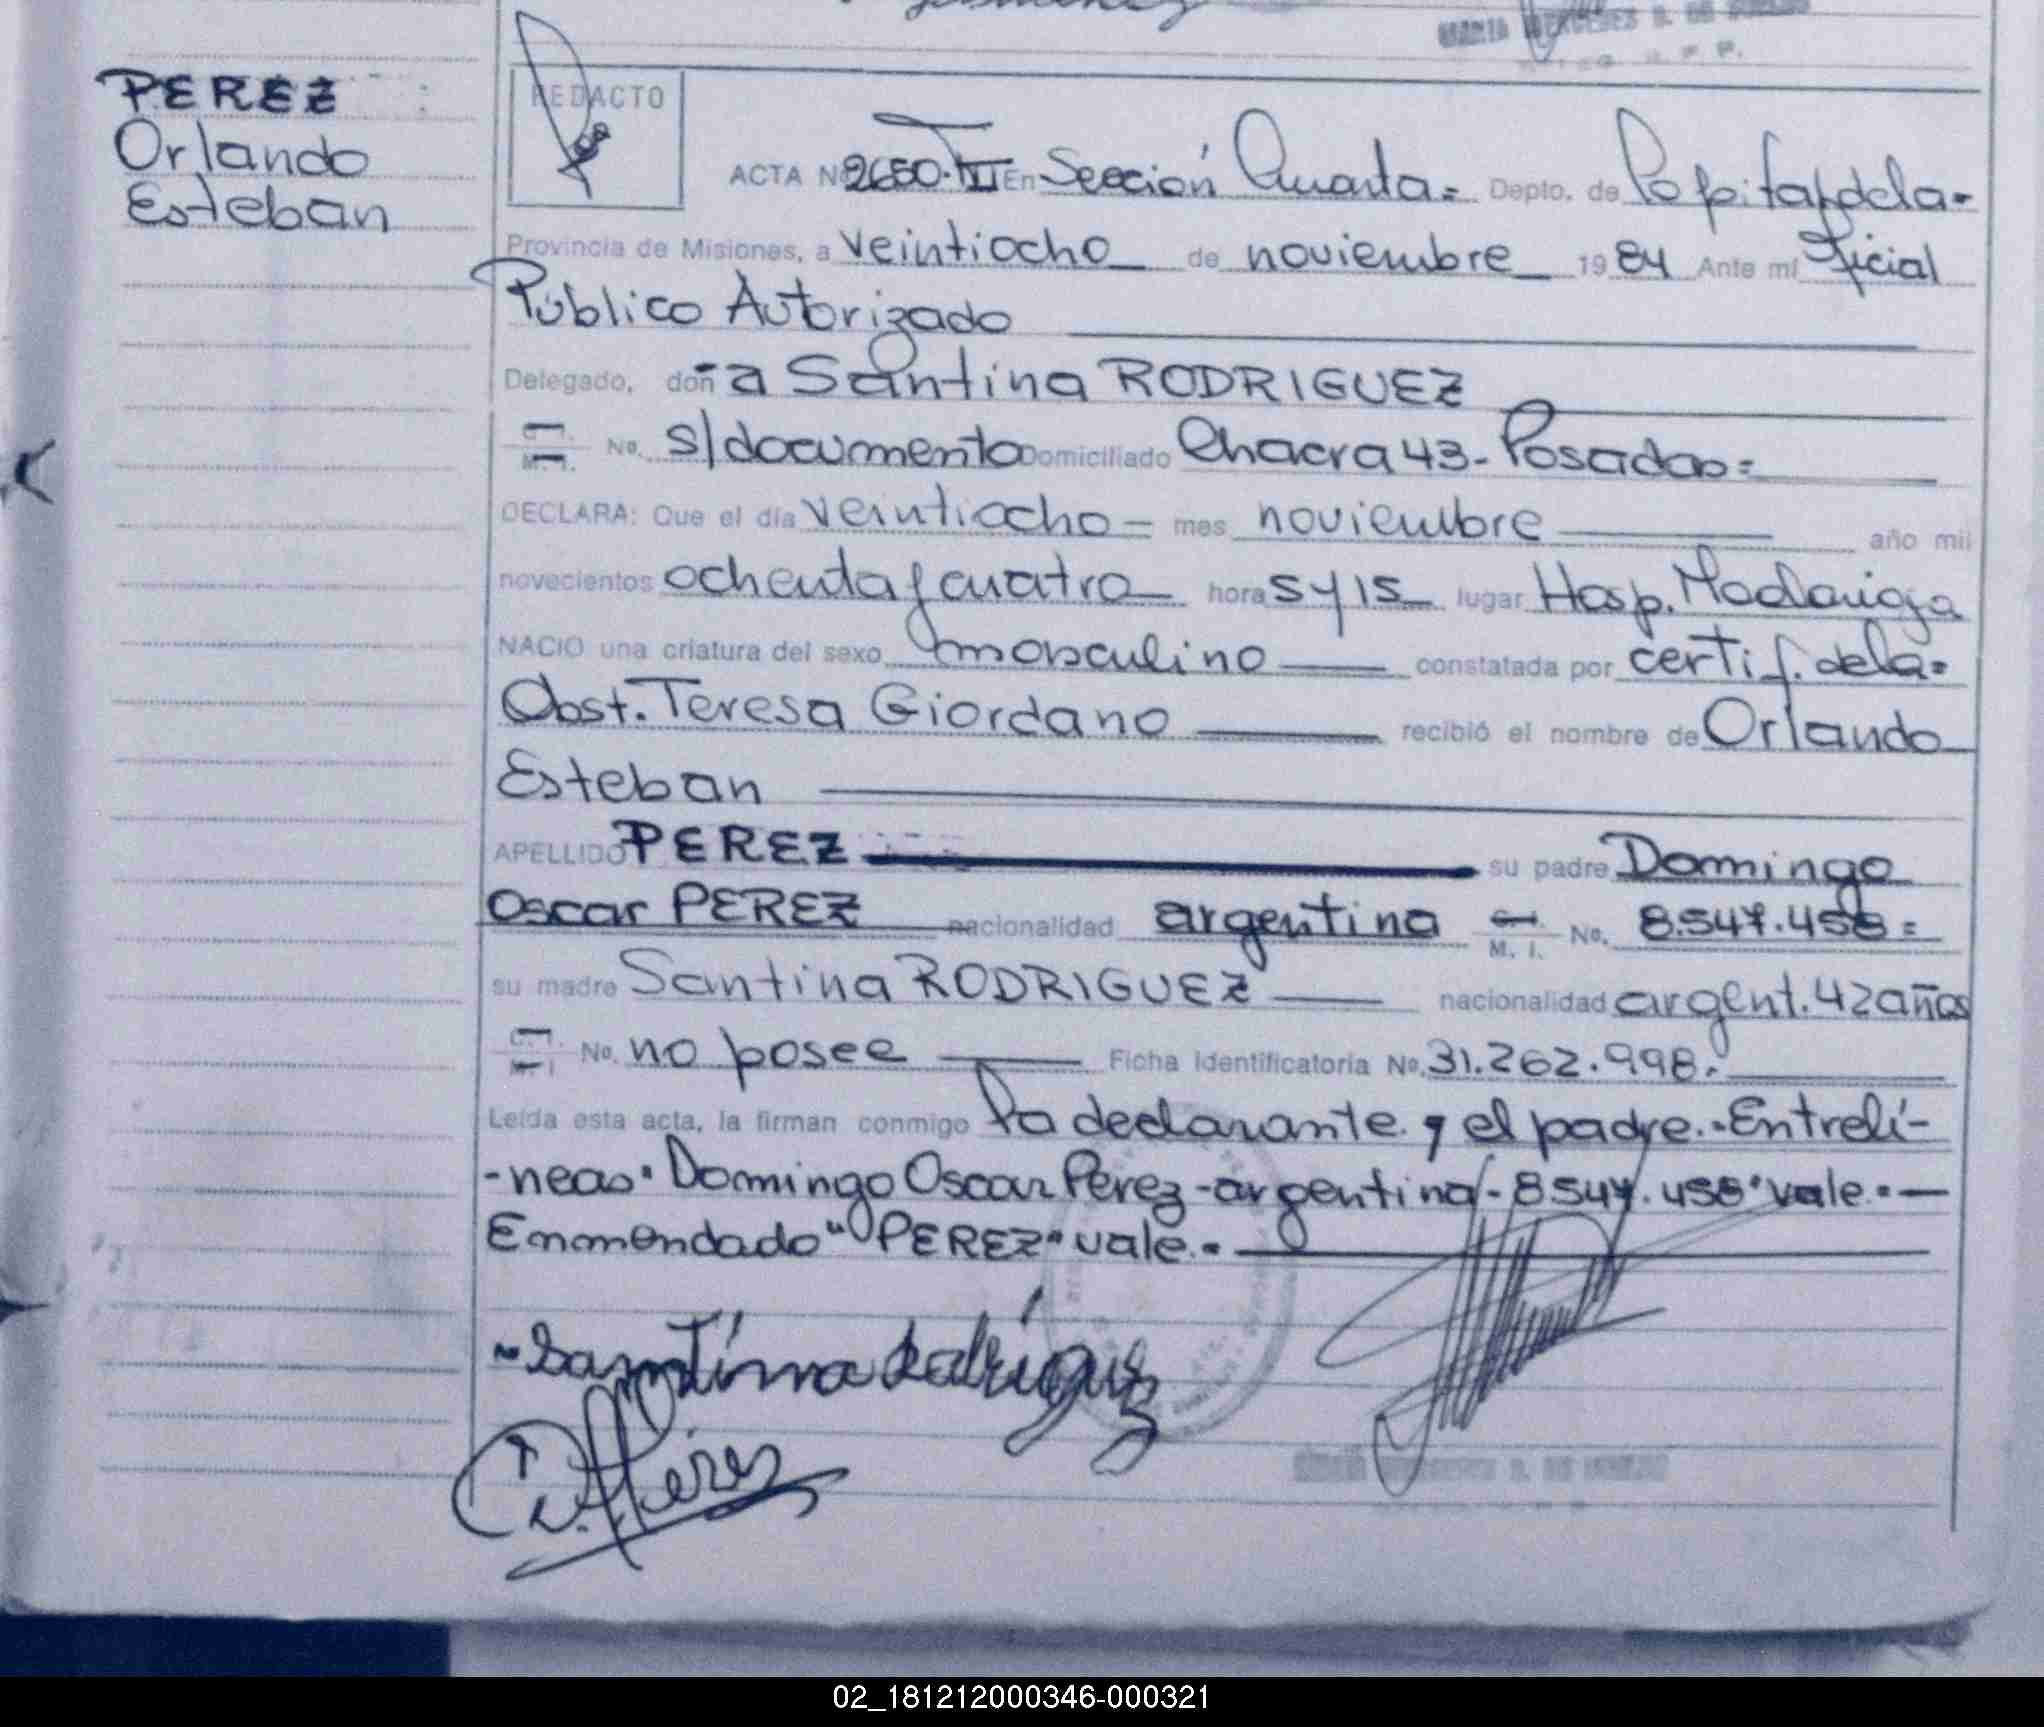 PEREZ
Orlando
Esteban
REDACTO
ACTA Nº 2650. TIII En Sección Cuarta = Depto. de Capital de la =
Provincia de Misiones, a veintiocho de noviembre 19 84 Ante mí Oficial
Público Autorizado
Delegado, doñ a Santina RODRIGUEZ
C. I.
M. I. No. s/documento Domiciliado Chacra 43 - Posadas =
DECLARA: Que el día veintiocho = mes noviembre año mil
novecientos ochenta y cuatro hora 5 y 15 lugar Hosp. Madariaga
NACIO una criatura del sexo masculino constatada por certif. de la =
Obst. Teresa Giordano recibió el nombre de Orlando
Esteban
APELLIDO PEREZ su padre Domingo
Oscar PEREZ nacionalidad argentina C. I.
M. I. No. 8.547.458 =
su madre Santina RODRIGUEZ nacionalidad argent. 42 años
C. I.
M. I. No. no posee Ficha Identificatoria No. 31.262.998.
Leída esta acta, la firman conmigo la declarante y el padre.-Entrelí-
-neas "Domingo Oscar Perez - argentina - 8547.458" vale.-
Enmendado "PEREZ" vale.-
Santina Rodriguez
Perez
02_181212000346-000321